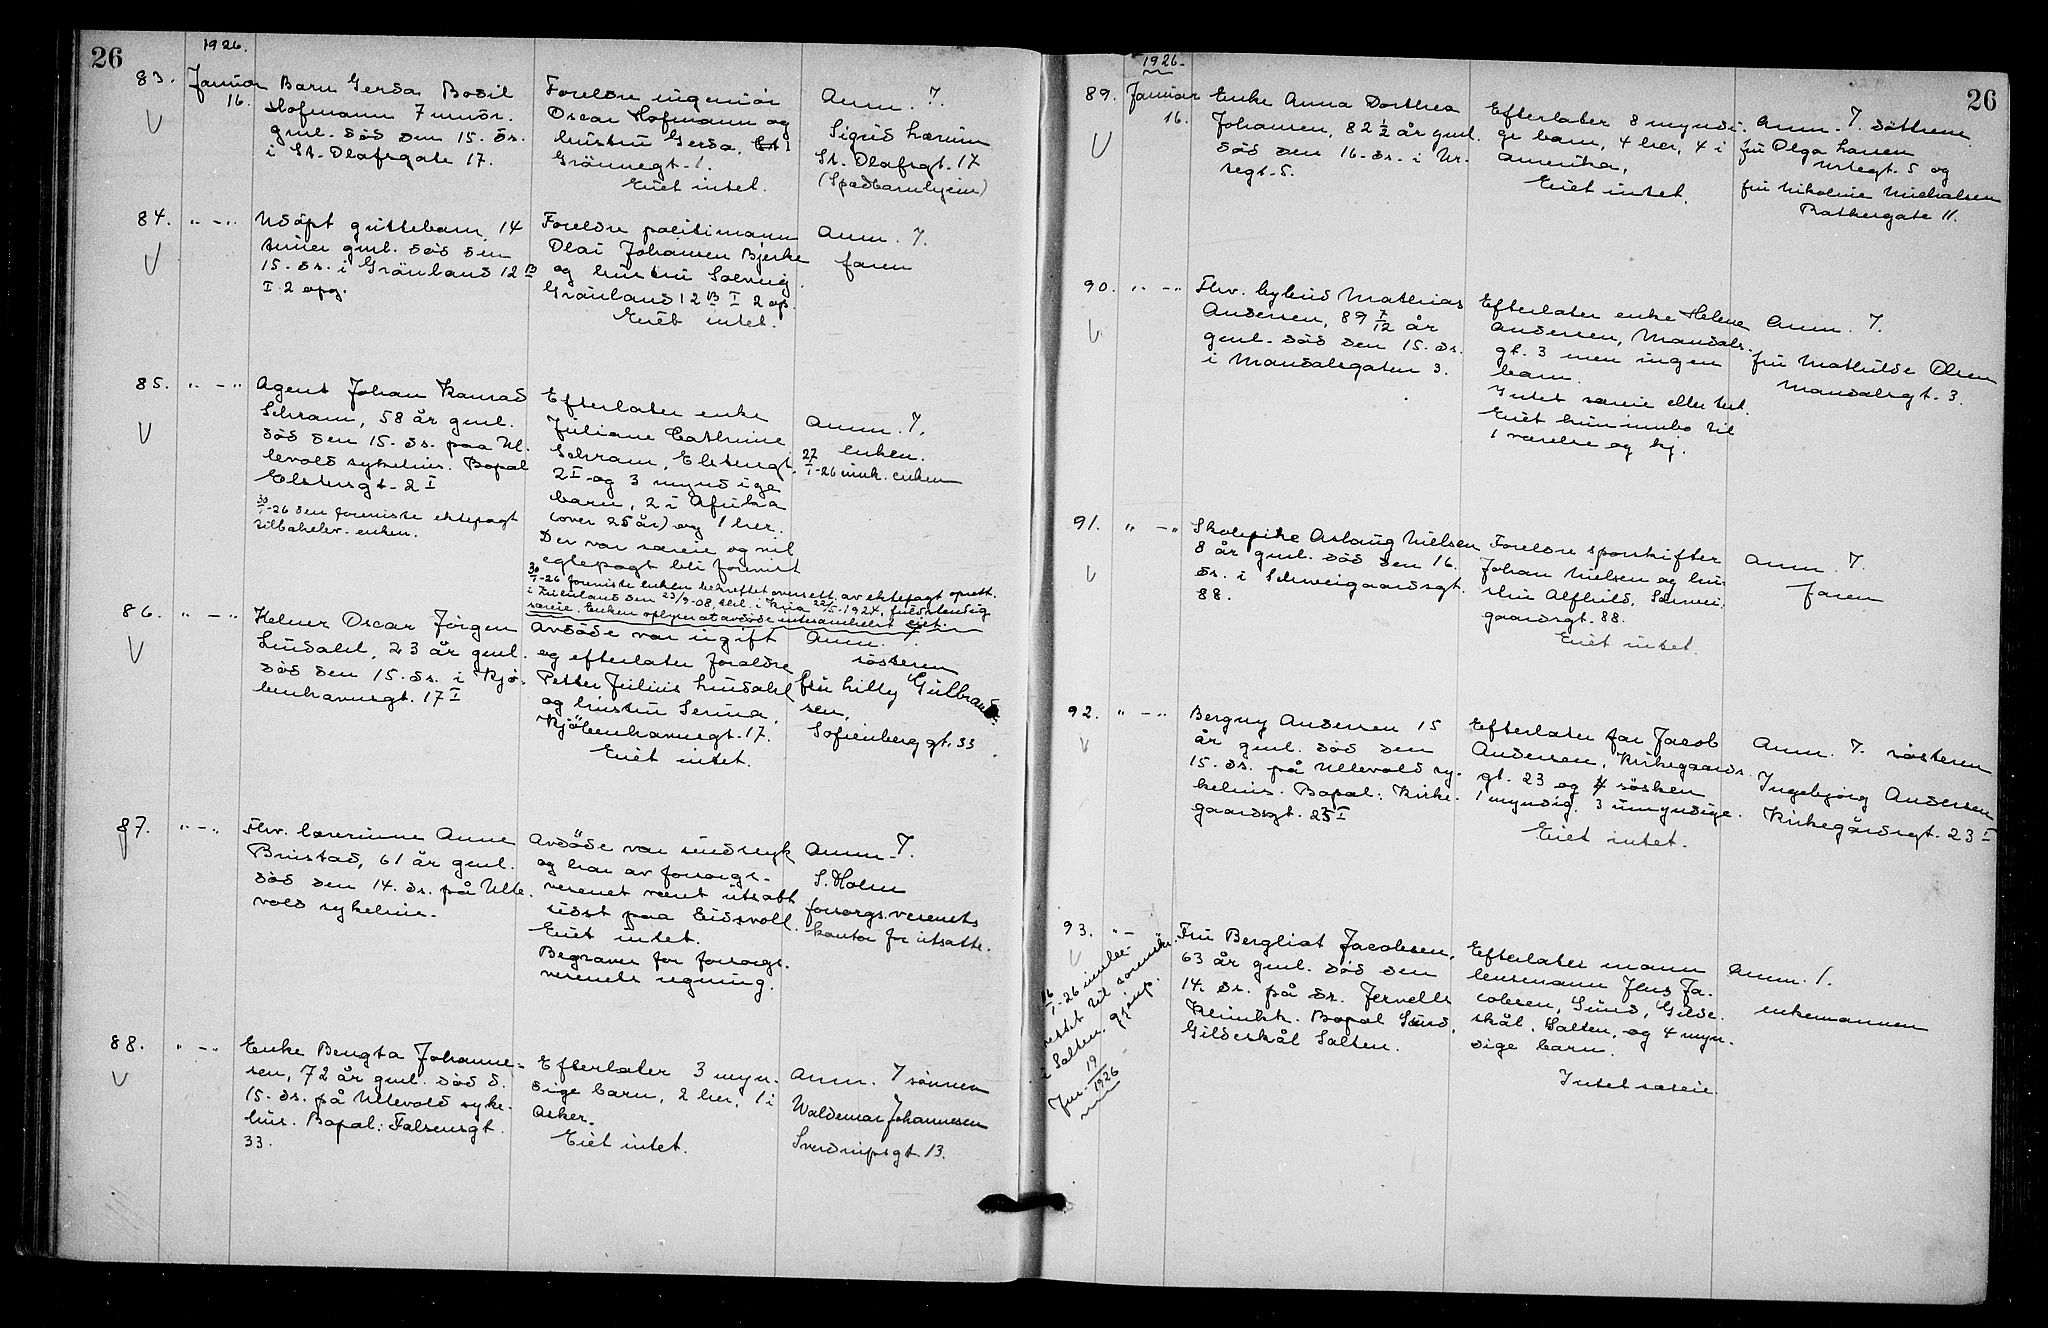 26
1926.
83. Januar 16.
Barn Gerda Bodil
Hofmann 7 mndr.
gml. död den 15. ds.
i St. Olafsgate 17.
Foreldre ingeniör
Oscar Hofmann og
hustru Gerda,
Grönnegt. 1.
Eiet intet.
Anm. 7.
Sigrid Lærum
St. Olafsgt. 17
(Spedbarnhjem)
84. " - "
Udöpt guttebarn, 14
timer gml. död den
15. ds. i Grönland 12 B
I 2 opg.
Foreldre politimann
Olai Johansen Bjerke
og hustru Solveig.
Grönland 12 B I 2 op.
Eiet intet.
Anm. 7.
faren
85. " - "
Agent Johan Konrad
Schram, 58 år gml.
död den 15. ds. paa Ul-
levold sykehus. Bopal
Elstersgt. 2 I
30/1-26 den foreviste ektepagt
tilbakelev. enken.
Efterlater enke
Juliane Cathrine
Schram, Elstersgt.
2 I og 3 myndige
barn, 2 i Afrika
(over 25 år) og 1 her.
Der var særeie og vil
egtepagt bli forevist
30/1-26 foreviste enken bekreftet oversett. av ektepagt oprett.
i den 23/9-08, tinl. i Kria 22/5-1924, fuldstendig
særeie. Enken oplyser at avdöde intetsomhelst eiet.
Anm. 7.
enken.
27/1-26 enken
86. " - "
Kelner Oscar Jörgen
Lindahl, 23 år gml.
död den 15. ds. i Kjö-
benhavnsgt. 17 I
Avdöde var ugift
og efterlater foreldre
Petter Julius Lindahl
og hustru Serina,
Kjöbenhavnsgt. 17.
Eiet intet.
Anm. 7.
sösteren
fru Lilly Gulbrand-
sen,
Sofienberggt. 33
87. " - "
Fhv. lærerinne Anne
Brustad, 61 år gml.
död den 14. ds. på Ulle-
vold sykehus.
Avdöde var sindssyk
og har av forsorgs-
vesenet vært utsatt
sidst paa Eidsvoll.
Eiet intet.
Begraves for forsorgs-
vesenets regning.
Anm. 7.
S. Holm
forsorgsvesenets
kontor for utsatte.
88. " - "
Enke Bengta Johanne-
sen, 72 år gml. död d.
15. ds. på Ullevold syke-
hus. Bopal: Falsensgt.
33.
Efterlater 3 myn-
dige barn, 2 her, 1 i
Asker.
Eiet intet.
Anm. 7 sönnen
Waldemar Johannesen
Sverdrupsgt. 13.
26
1926.
89. Januar 16.
Enke Anna Dorthea
Johansen, 82 1/2 år gml.
död den 16. ds. i Ur-
tegt. 5.
Efterlater 8 myndi-
ge barn, 4 her, 4 i
Amerika,
Eiet intet.
Anm. 7. döttrene
fru Olga Larsen
Urtegt. 5 og
fru Nikoline Michalsen
Rathkesgate 11.
90. " - "
Fhv. bybud Mathias
Andersen, 89 7/12 år
gml. död den 15. ds.
i Mandalsgaten 3.
Efterlater enke Helene
Andersen, Mandals-
gt. 3 men ingen
barn.
Intet særeie eller test.
Eiet kun innbo til
1 værelse og kj.
Anm. 7.
fru Mathilde Olsen
Mandalsgt. 3.
91. " - "
Skolepike Aslaug Nielsen
8 år gml. död den 16.
ds. i Schweigaardsgt.
88.
Foreldre sporskifter
Johan Nielsen og hu-
stru Alfhild, Schwei-
gaardsgt. 88.
Eiet intet.
Anm. 7.
faren
92. " - "
Bergny Andersen 15
år gml. död den
15. ds. på Ullevold sy-
kehus. Bopal: Kirke-
gaardsgt. 23 I
Efterlater far Jacob
Andersen, Kirkegaards-
gt. 23 og 4 sösken
1 myndig, 3 umyndige.
Eiet intet.
Anm. 7. sösteren
Ingebjörg Andersen
Kirkegårdsgt. 23 I
93. " -
Fru Bergliot Jacobsen,
63 år gml. död den
14. ds. på dr. Jervells
Klinikk. Bopal Sund,
Gildeskål Salten.
Efterlater mann
lensmann Jens Ja-
cobsen, Sund, Gilde-
skål, Salten, og 4 myn-
dige barn.
Intet særeie.
Anm. 7.
enkemannen
16/1-26 innbe-
rettet til sorenskr.
i Salten. gjenp.
Jnr. 19/1926